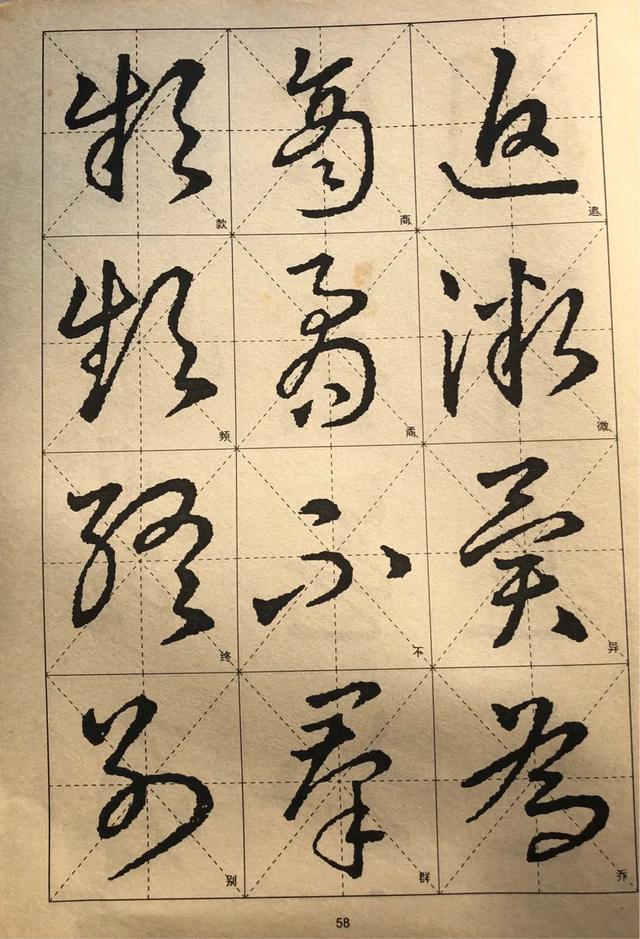 追
微
异
乔
商
不
群
款
频
终
别
58